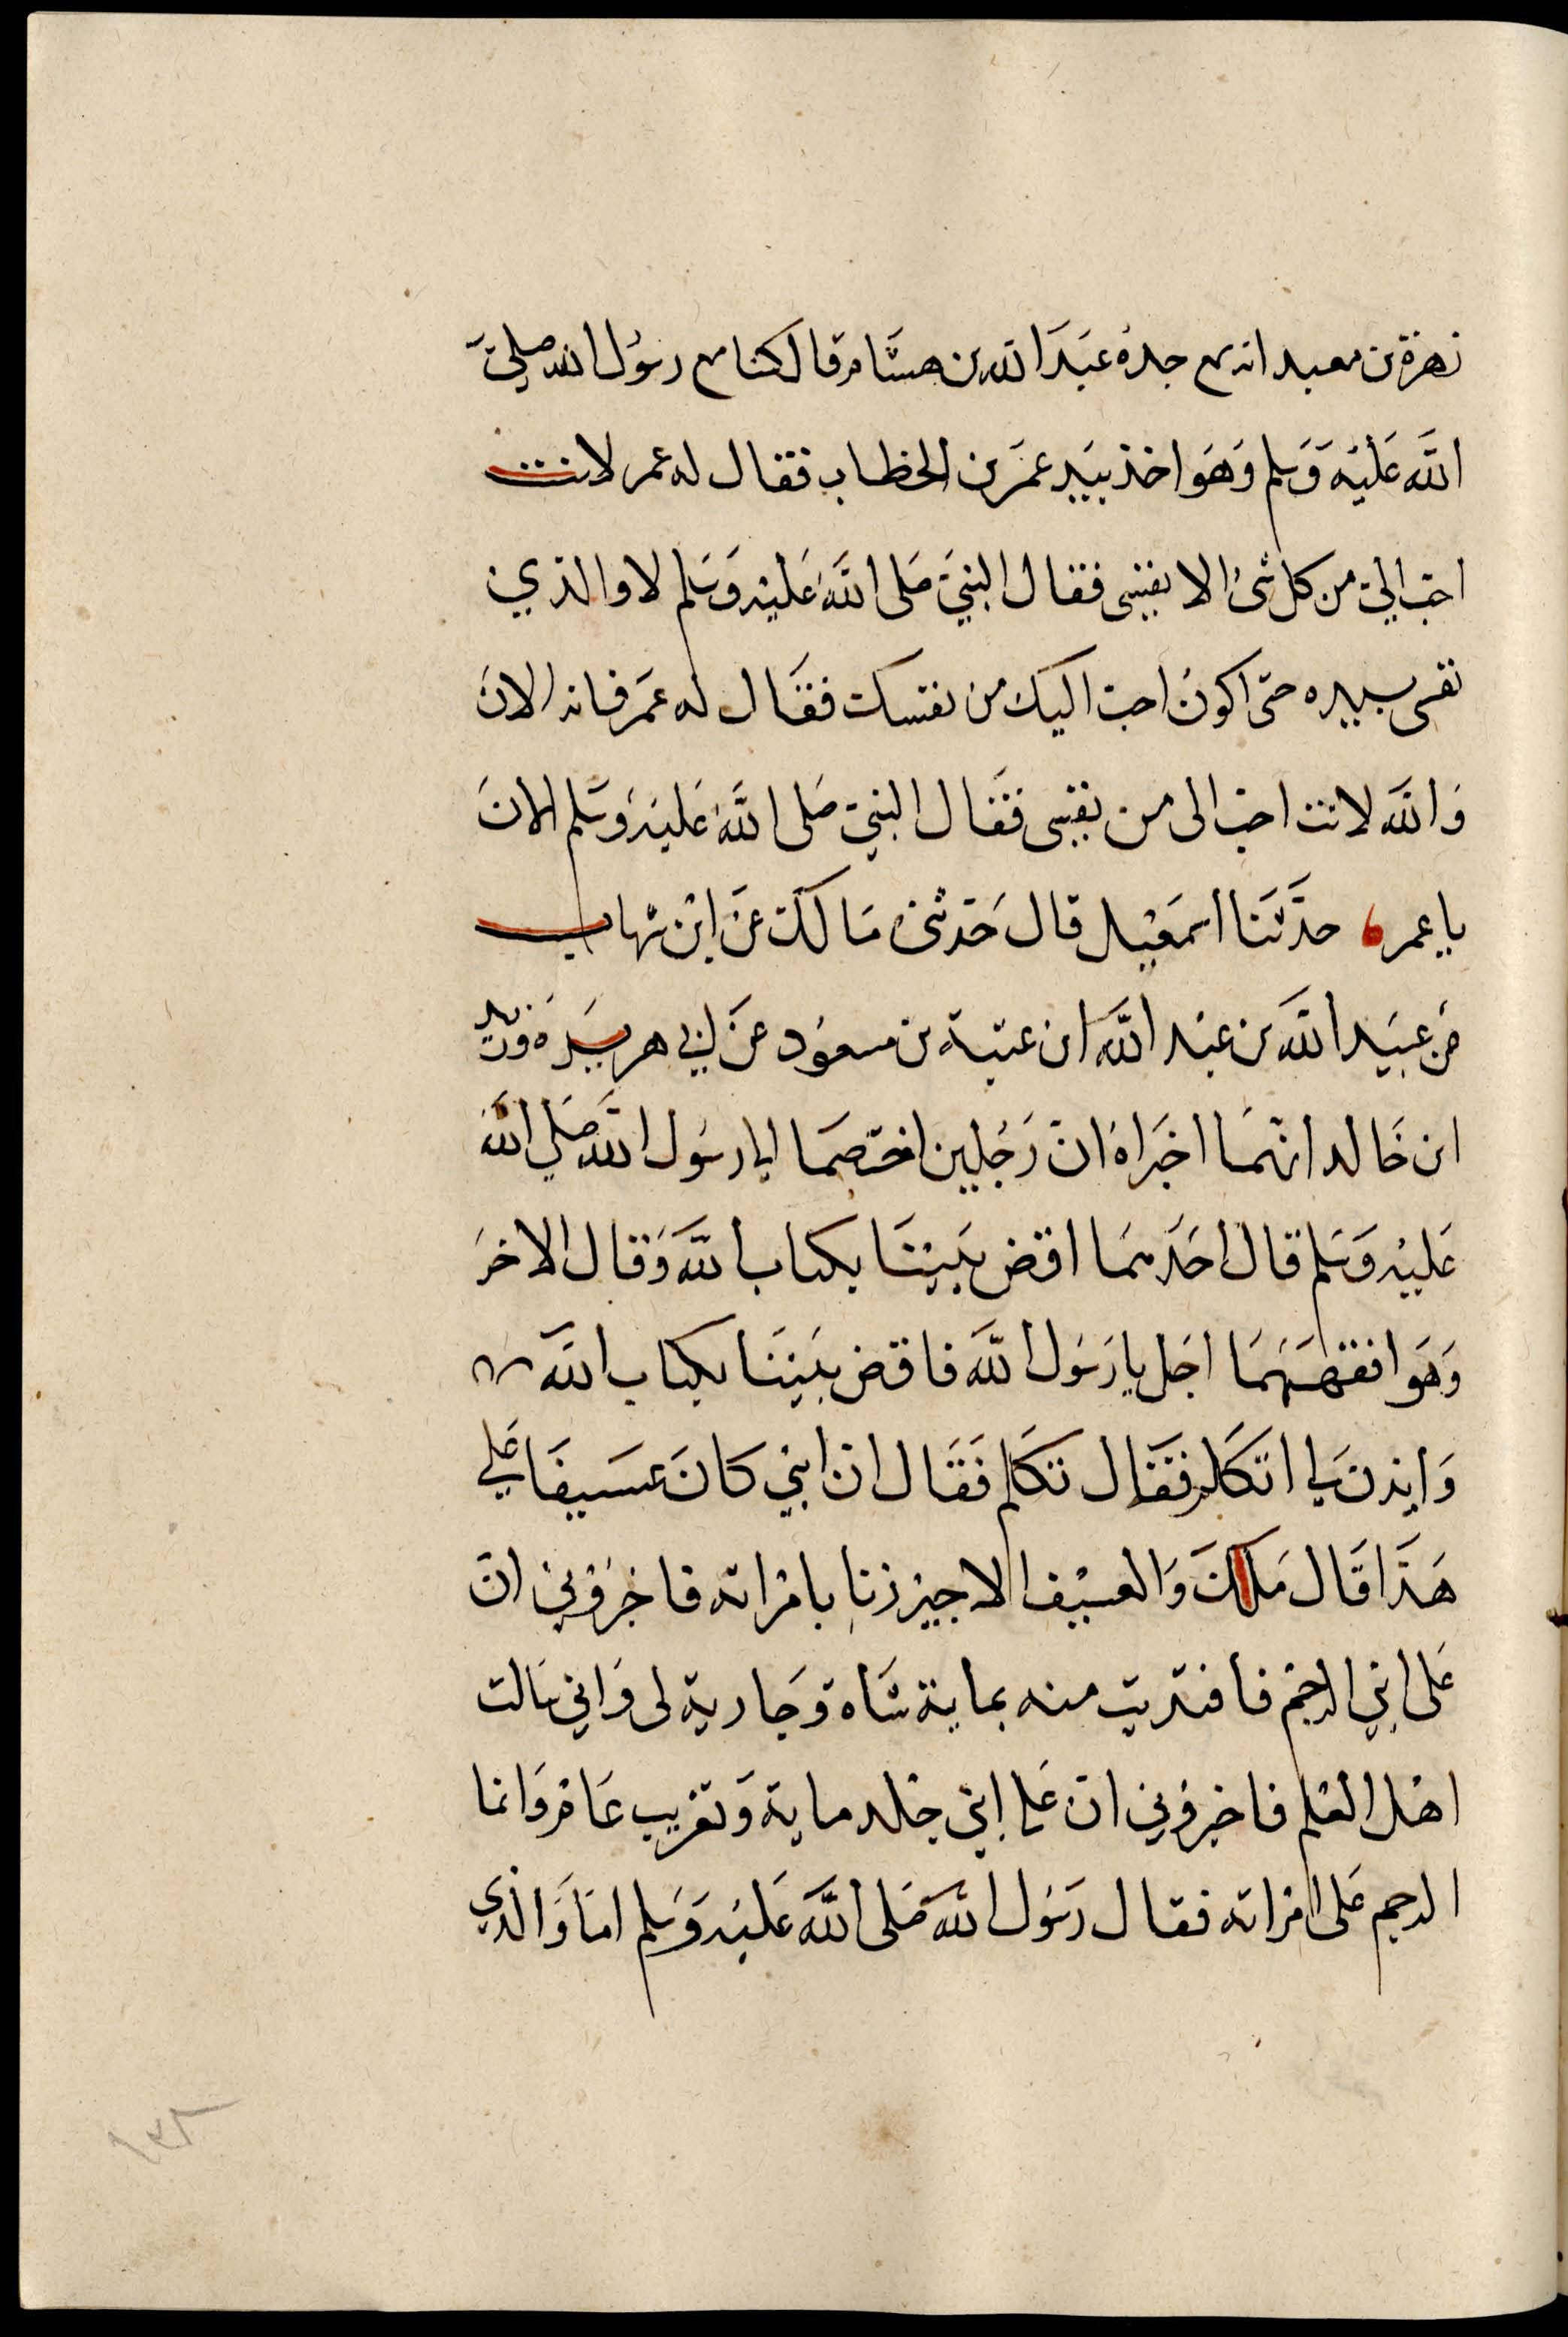 زهرة بن معبد انه سمع جده عبد الله بن هشام قال كنا مع رسول الله صلى
الله عليه وسلم وهو اخذ بيد عمر بن الخطاب فقال له عمر لانت
احب الي من كل شئ الا نفسى فقال النبي صلى الله عليه وسلم لا والذي
نفسى بيده حتى اكون احب اليك من نفسك فقال له عمر فانه الان
والله لانت احب الى من نفسى فقال النبي صلى الله عليه وسلم الان
يا عمر، حدثنا اسمعيل قال حدثنى مالك عن ابن شهاب
عن عبيد الله بن عبد الله ابن عتبة بن مسعود عن ابي هريرة وزيد
ابن خالد انهما اخبراه ان رجلين اختصما الى رسول الله صلى الله
عليه وسلم قال احدهما اقض بيننا بكتاب الله وقال الاخر
وهو افقههما اجل يا رسول الله فاقض بيننا بكتاب الله
وايذن لي اتكلم فقال تكلم فقال ان ابني كان عسيفا على
هذا قال ملك والعسيف الاجير زنا بامراته فاخبروني ان
على ابني الرجم فافتديت منه بماية شاة وجارية لى واني سالت
اهل العلم فاخبروني ان على ابني جلد ماية وتغريب عام وانما
الرجم على امراته فقال رسول الله صلى الله عليه وسلم اما والذي